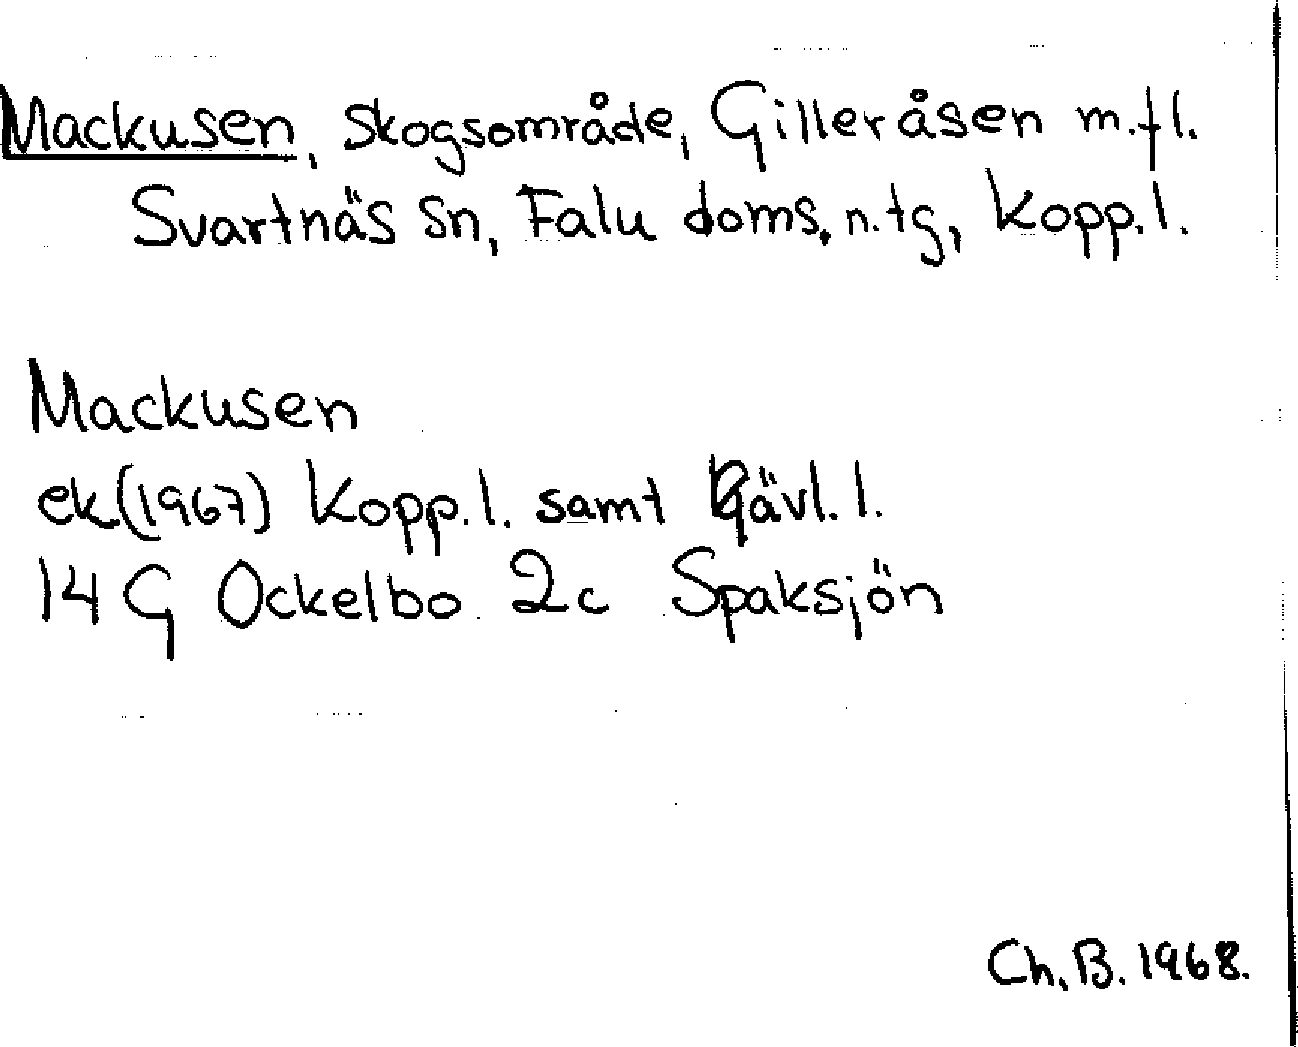 Mackusen, skogsområde, Gilleråsen m.fl.
Svartnäs sn, Falu doms. n.tg, Kopp.l.
Mackusen
ek(1967) Kopp.l. samt Gävl.l.
14 G Ockelbo 2c Spaksjön
Ch.B. 1968.